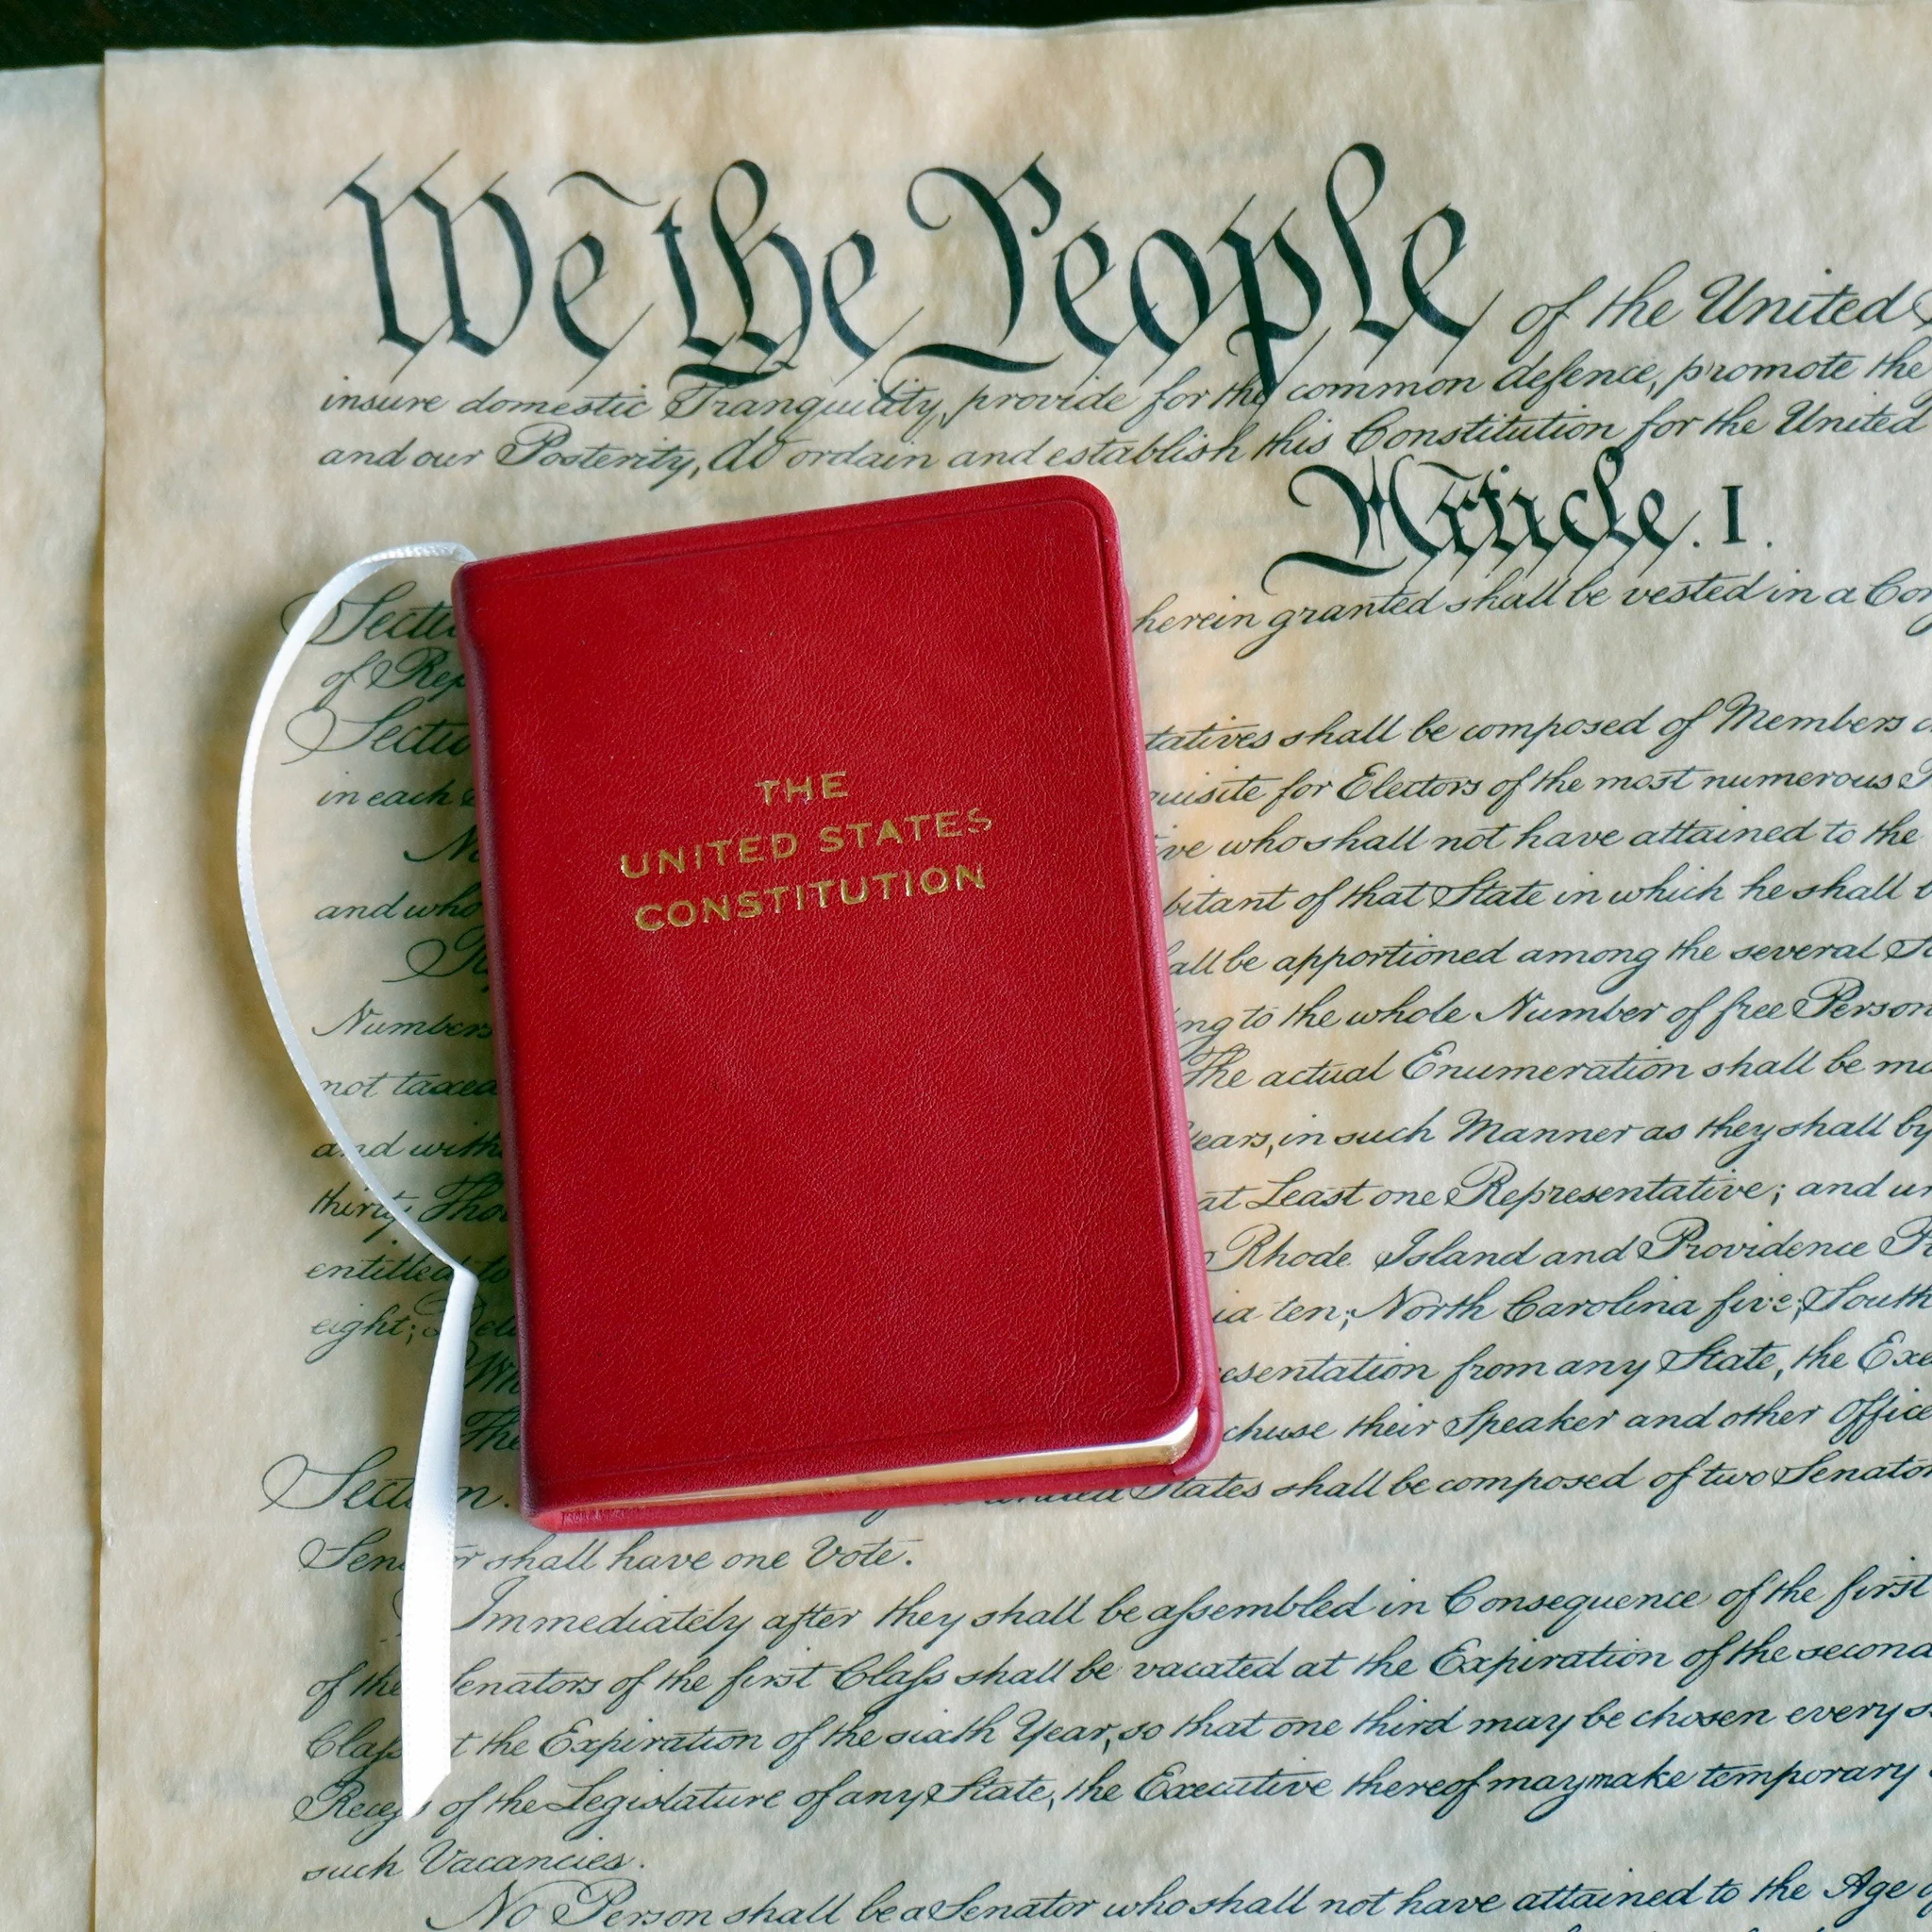 We the People of the United
insure domestic Tranquility, provide for the common defence, promote the
and our Posterity, do ordain and establish this Constitution for the United
Article. I.
herein granted shall be vested in a
of
shall be composed of Members
in each
for Electors of the most numerous
who shall not have attained to the
and who
of that State in which he shall
be apportioned among the several
Numbers
to the whole Number of free
not taxed
The actual Enumeration shall be
and
in such Manner as they shall by
thirty
at Least one Representative; and
entitled to
Rhode Island and Providence
eight;
ten; North Carolina five; South
from any State, the
The
chuse their Speaker and other
States shall be composed of two
shall have one Vote.
Immediately after they shall be assembled in Consequence of the first
of the
of the first Class shall be vacated at the Expiration of the second
the Expiration of the sixth Year, so that one third may be chosen every
of the Legislature of any State, the Executive thereof may make temporary
such Vacancies.
No Person shall be a Senator who shall not have attained to the Age
THE
UNITED STATES
CONSTITUTION